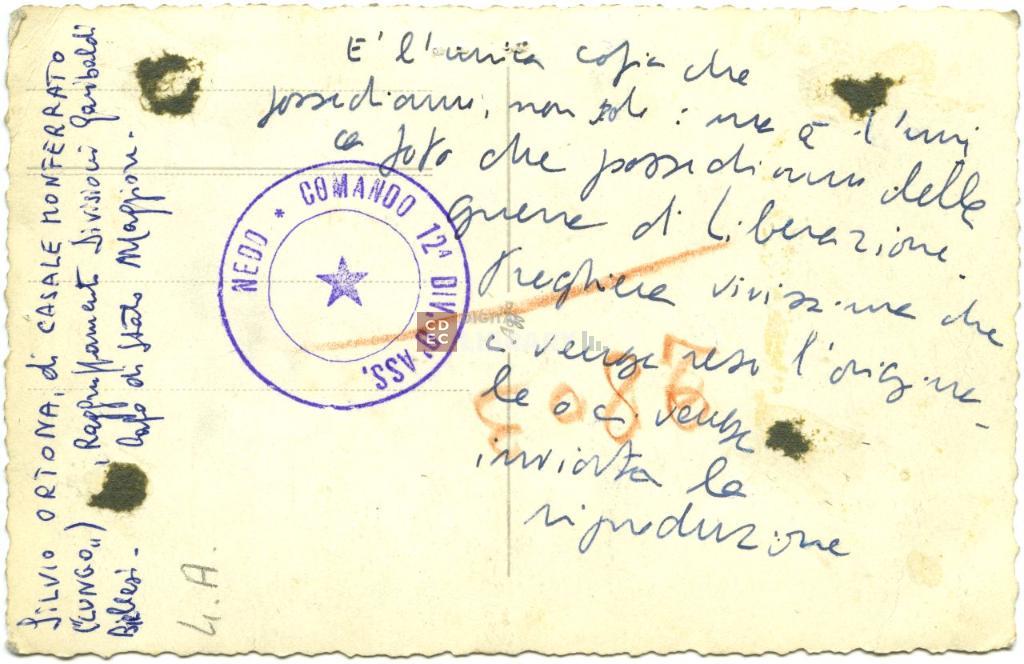 E' l'unica copia che
possediamo, non solo: ma è l'uni
ca foto che possediamo della
guerra di Liberazione.
Preghiera vivissima che
ci venga reso l'origina-
le o ci venga
inviata la
riproduzione
SILVIO ORTONA, di CASALE MONFERRATO
("LUNGO„), Raggruppamenti Divisioni Garibaldi
Biellesi - Capo di Stato Maggiore.
NEDO * COMANDO 12ª DIV. D'ASS.
CD
EC
4.A.